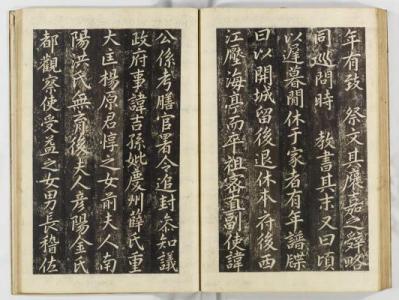 年有致 祭文其襃嘉之辭略
同巡問時 教書其末又曰頃
以遲暮閒休于家者有年譜牒
曰以開城留後退休本府後西
江壓海亭而卒祖密直副使諱
公係考膳官署令追封叅知議
政府事諱吉孫妣慶州薛氏重
大匡楊原君惇之女前夫人南
陽洪氏無育後夫人彦陽金氏
都觀察使受益之女男長稽佐